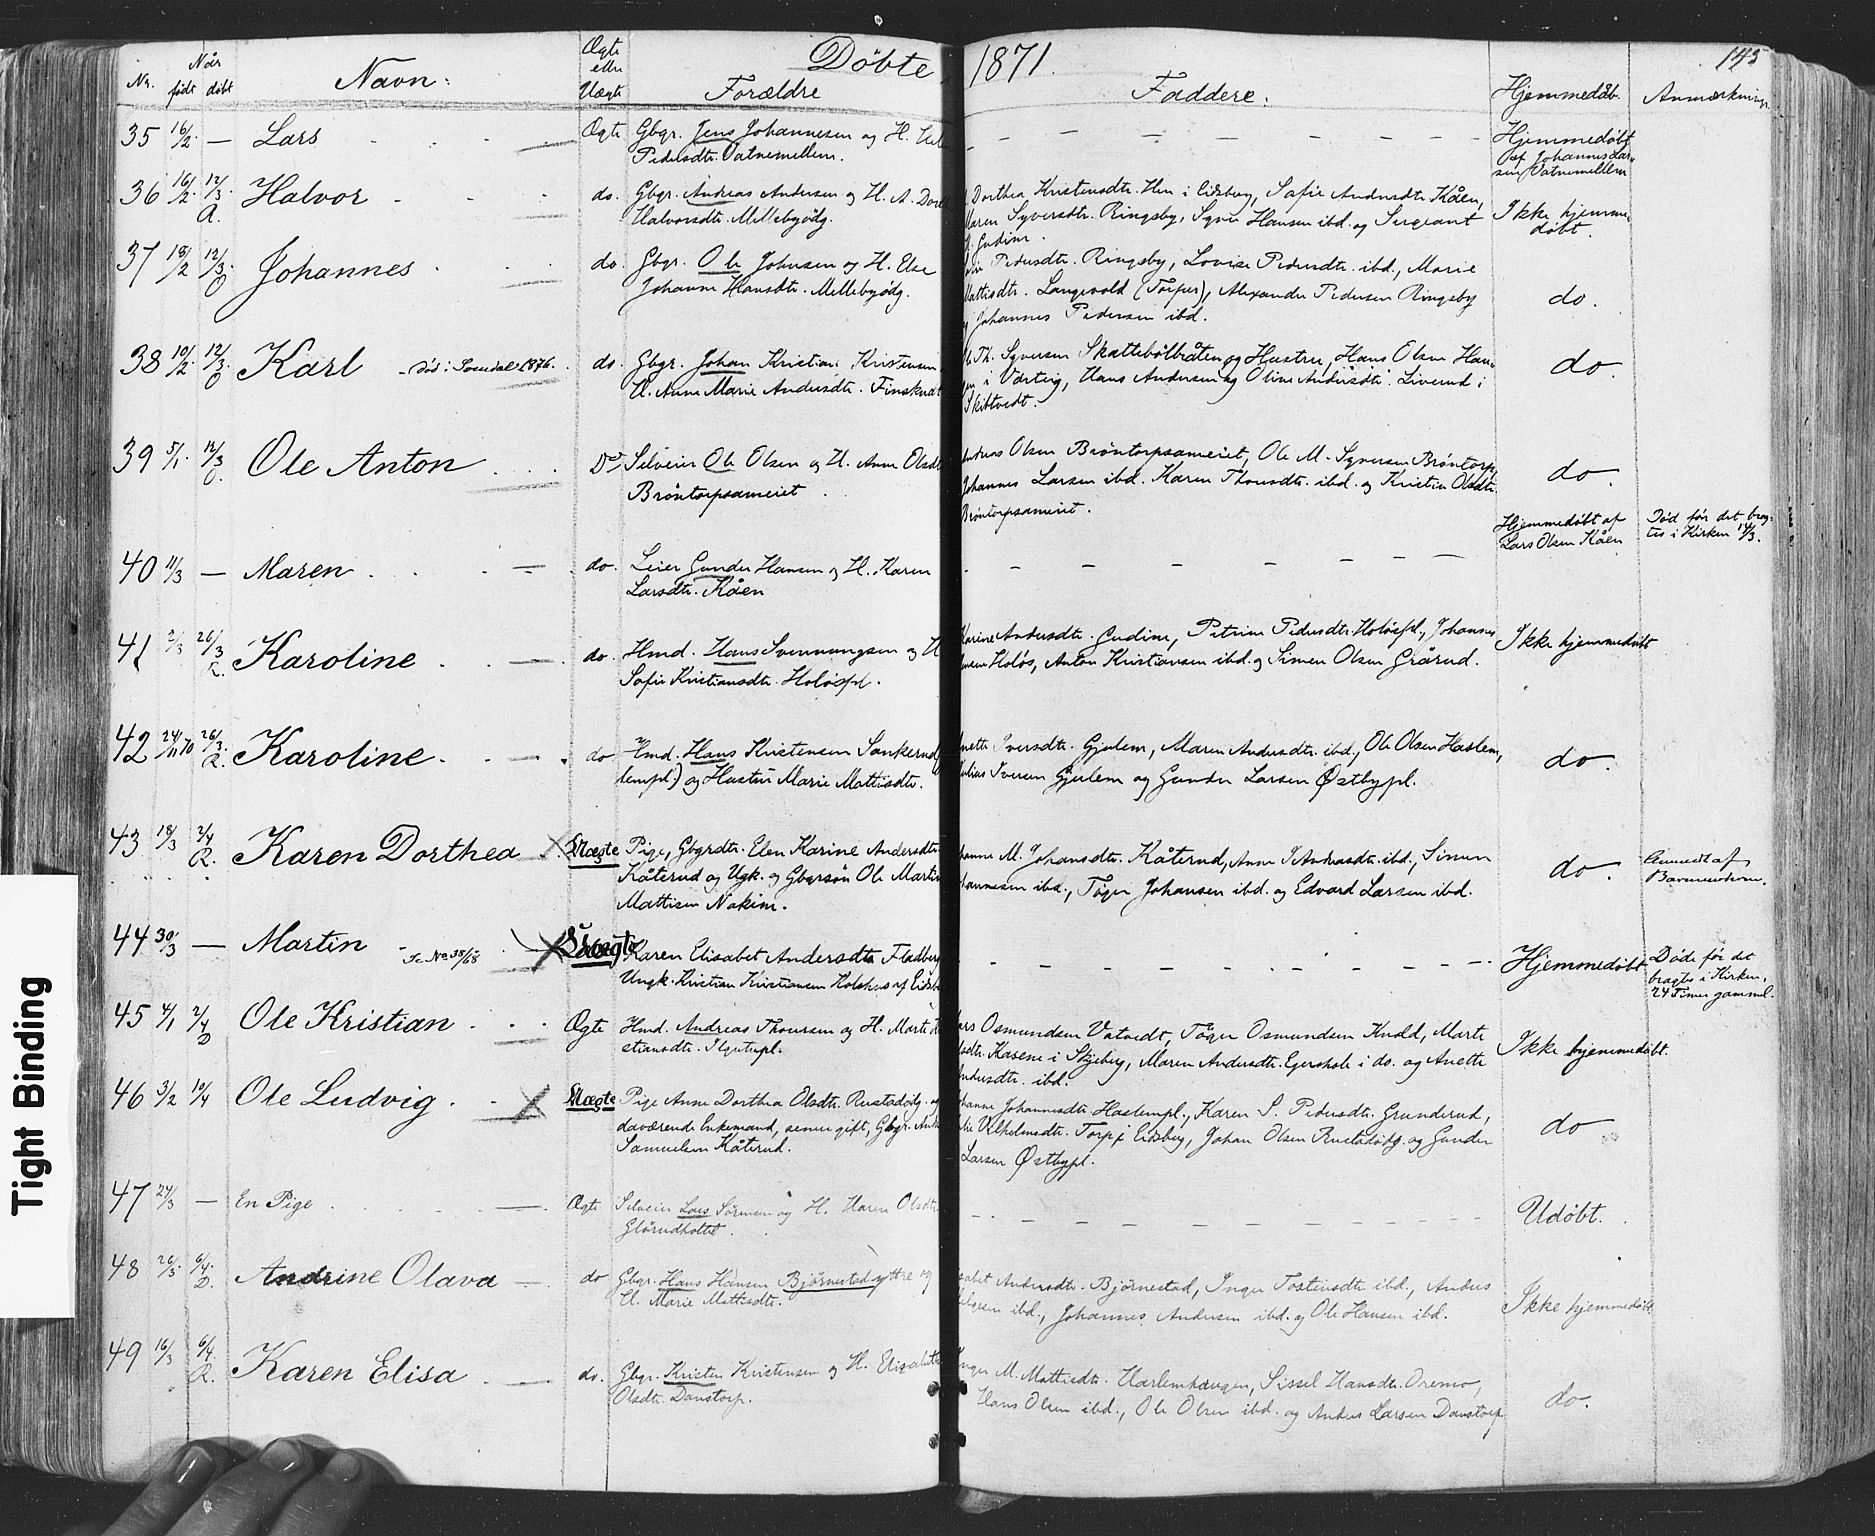 Døbte 1871. 145
Nr. Når født døbt Navn: Ægte eller Uægte Forældre Faddere: Hjemmedøb. Anmærkning
35 16/2. — Lars Ægte Gbgr. Jens Johannesen og H. — — — — Hjemmedøbt
Pedersdtr. Vatnemellem. af Johannes Lar-
sen Vatnemellem
36 16/2. 12/3. Halvor do. Gbgr. Andreas Andersen og H. A. Dor Dorthea Kristensdtr. Hen i Eidsberg, Sofie Andersdtr. Kåen,
A. Halvorsdtr. Mellebyødg. Maren Syversdtr. Ringsby, Syver Hansen ibd. og Sergeant Ikke hjemme-
Gudim. døbt.
37 18/2 12/3. Johannes do. Gbgr. Ole Johnsen og H. Else Pedersdtr. Ringsby, Lovise Pedersdtr. ibd., Marie
O Johanne Hansdtr. Mellebyødg. Mattisdtr. Langevold (Torper), Alexander Pedersen Ringsby do.
Johannes Pedersen ibd.
38 10/2. 12/3 Karl Død i Soendal 1876. do. Gbgr. Johan Kristian Kristensen Th. Syversen Skattebølbråten og Hustru, Hans Olsen Han-
O H. Anne Marie Andersdtr. Finsknat i Varteig, Hans Andersen og Oline Andersdtr. Liverud i do.
Skibtvedt.
39 5/1. 12/3 Ole Anton Do Selveier Ole Olsen og H. Anne Olsdt Andreas Olsen Brøntorpsameiet, Ole M. Syversen Brøntorp,
O. Brøntorpsameiet Johannes Larsen ibd. Karen Thorsdtr. ibd. og Kristin Olsdtr. do.
Brøntorpsameiet.
Hjemmedøbt af Død før det brag-
Lars Olsen Kåen tes i Kirken 14/3.
40 11/3 — Maren do. Leier Gunder Hansen og H. Karen — — — —
Larsdtr. Kåen
41 2/3 26/3 Karoline do. Hmd. Hans Svenningsen og H Karine Andersdtr. Gudim, Petrine Pedersdtr. Holøspl., Johannes Ikke hjemmedøbt
R. Sofie Kristiansdtr. Holøspl. Jensen Holøs, Anton Kristiansen ibd. og Simen Olsen Grårud.
42 24/11 70 26/3. Karoline. do Hmd. Hans Kristensen Sankerud Anette Iversdtr. Gjulem, Maren Andersdtr. ibd., Ole Olsen Haslem,
R. lempl.) og Hustru Marie Mattisdtr. Julius Iversen Gjulem og Gunder Larsen Østbypl. do.
43 18/3 2/4 Karen Dorthea X Uægte Pige, Gbgrdtr. Elen Karine Andersdtr. Johanne M. Johansdtr. Kåterud, Anne I. Andreasdtr. ibd., Simen Anmeldt af
R. Kåterud og Ugk. og Gbgrsøn Ole Martin Johannesen ibd., Tøger Johansen ibd. og Edvard Larsen ibd. do.
Mattisen Nakim.
44 30/3 — Martin Se No 38/68 X Uægte Karen Elisabet Andersdtr. Fladberg — — — — Hjemmedøbt Døde før det
Ungk. Kristian Kristiansen Kolshus af Eidsb bragtes i Kirken.
24 Timer gammel.
45 4/1 2/4 Ole Kristian Ægte Hmd. Andreas Thoresen og H. Marte K Lars Osmundsen Vatvedt, Tøger Osmundsen Kudd, Marte
D stiansdtr. Ilgutupl. Kasene i Skjeberg, Maren Andersdtr. Egerskole i do. og Anette Ikke hjemmedøbt.
Andersdtr. ibd.
46 3/2 10/4 Ole Ludvig. X Uægte Pige Anne Dorthea Olsdtr. Rustadødg. og Johanne Johannesdtr. Haslempl., Karen S. Pedersdtr. Grunderud,
daværende Enkemand, senere gift, Gbgr. And Vilhelmsdtr. Torp i Eidsberg, Johan Olsen Rustadødg. og Gunder do
Samuelsen Kåterud. Larsen Østbypl.
47 24/3 — En Pige Ægte Selveier Lars Sørensen og H. Maren Olsdtr. — — — — Udøbt.
Glørudholtet.
48 26/3. 6/4. Andrine Olava do Gbgr. Hans Hansen Bjørnestad ytre og Andersdtr. Bjørnestad, Inger Tostensdtr. ibd., Anders
D. H. Marie Mattisdtr. ibd., Johannes Andersen ibd. og Ole Hansen ibd. Ikke hjemmedøbt
49 16/3 6/4. Karen Elisa do. Gbgr. Kristen Kristensen og H. Elisabeth Inger M. Mattisdtr. Harlemhaugen, Sissel Hansdtr. Oremo,
R. Olsdtr. Danstorp. Hans Olsen ibd., Ole Olsen ibd. og Anders Larsen Danstorp. do.
Tight Binding